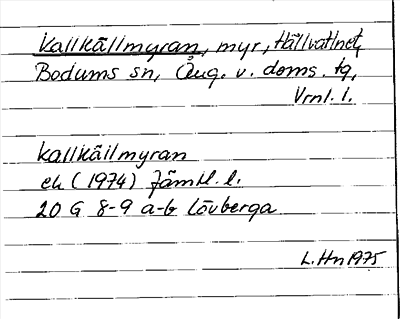 Kallkällmyran, myr, Hällvattnet,
Bodums sn, Ång. v. doms. tg,
Vrnl. l.
Kallkällmyran
ek (1974) Jämtl. l.
20 G 8-9 a-b Lövberga
L. Hn 1975